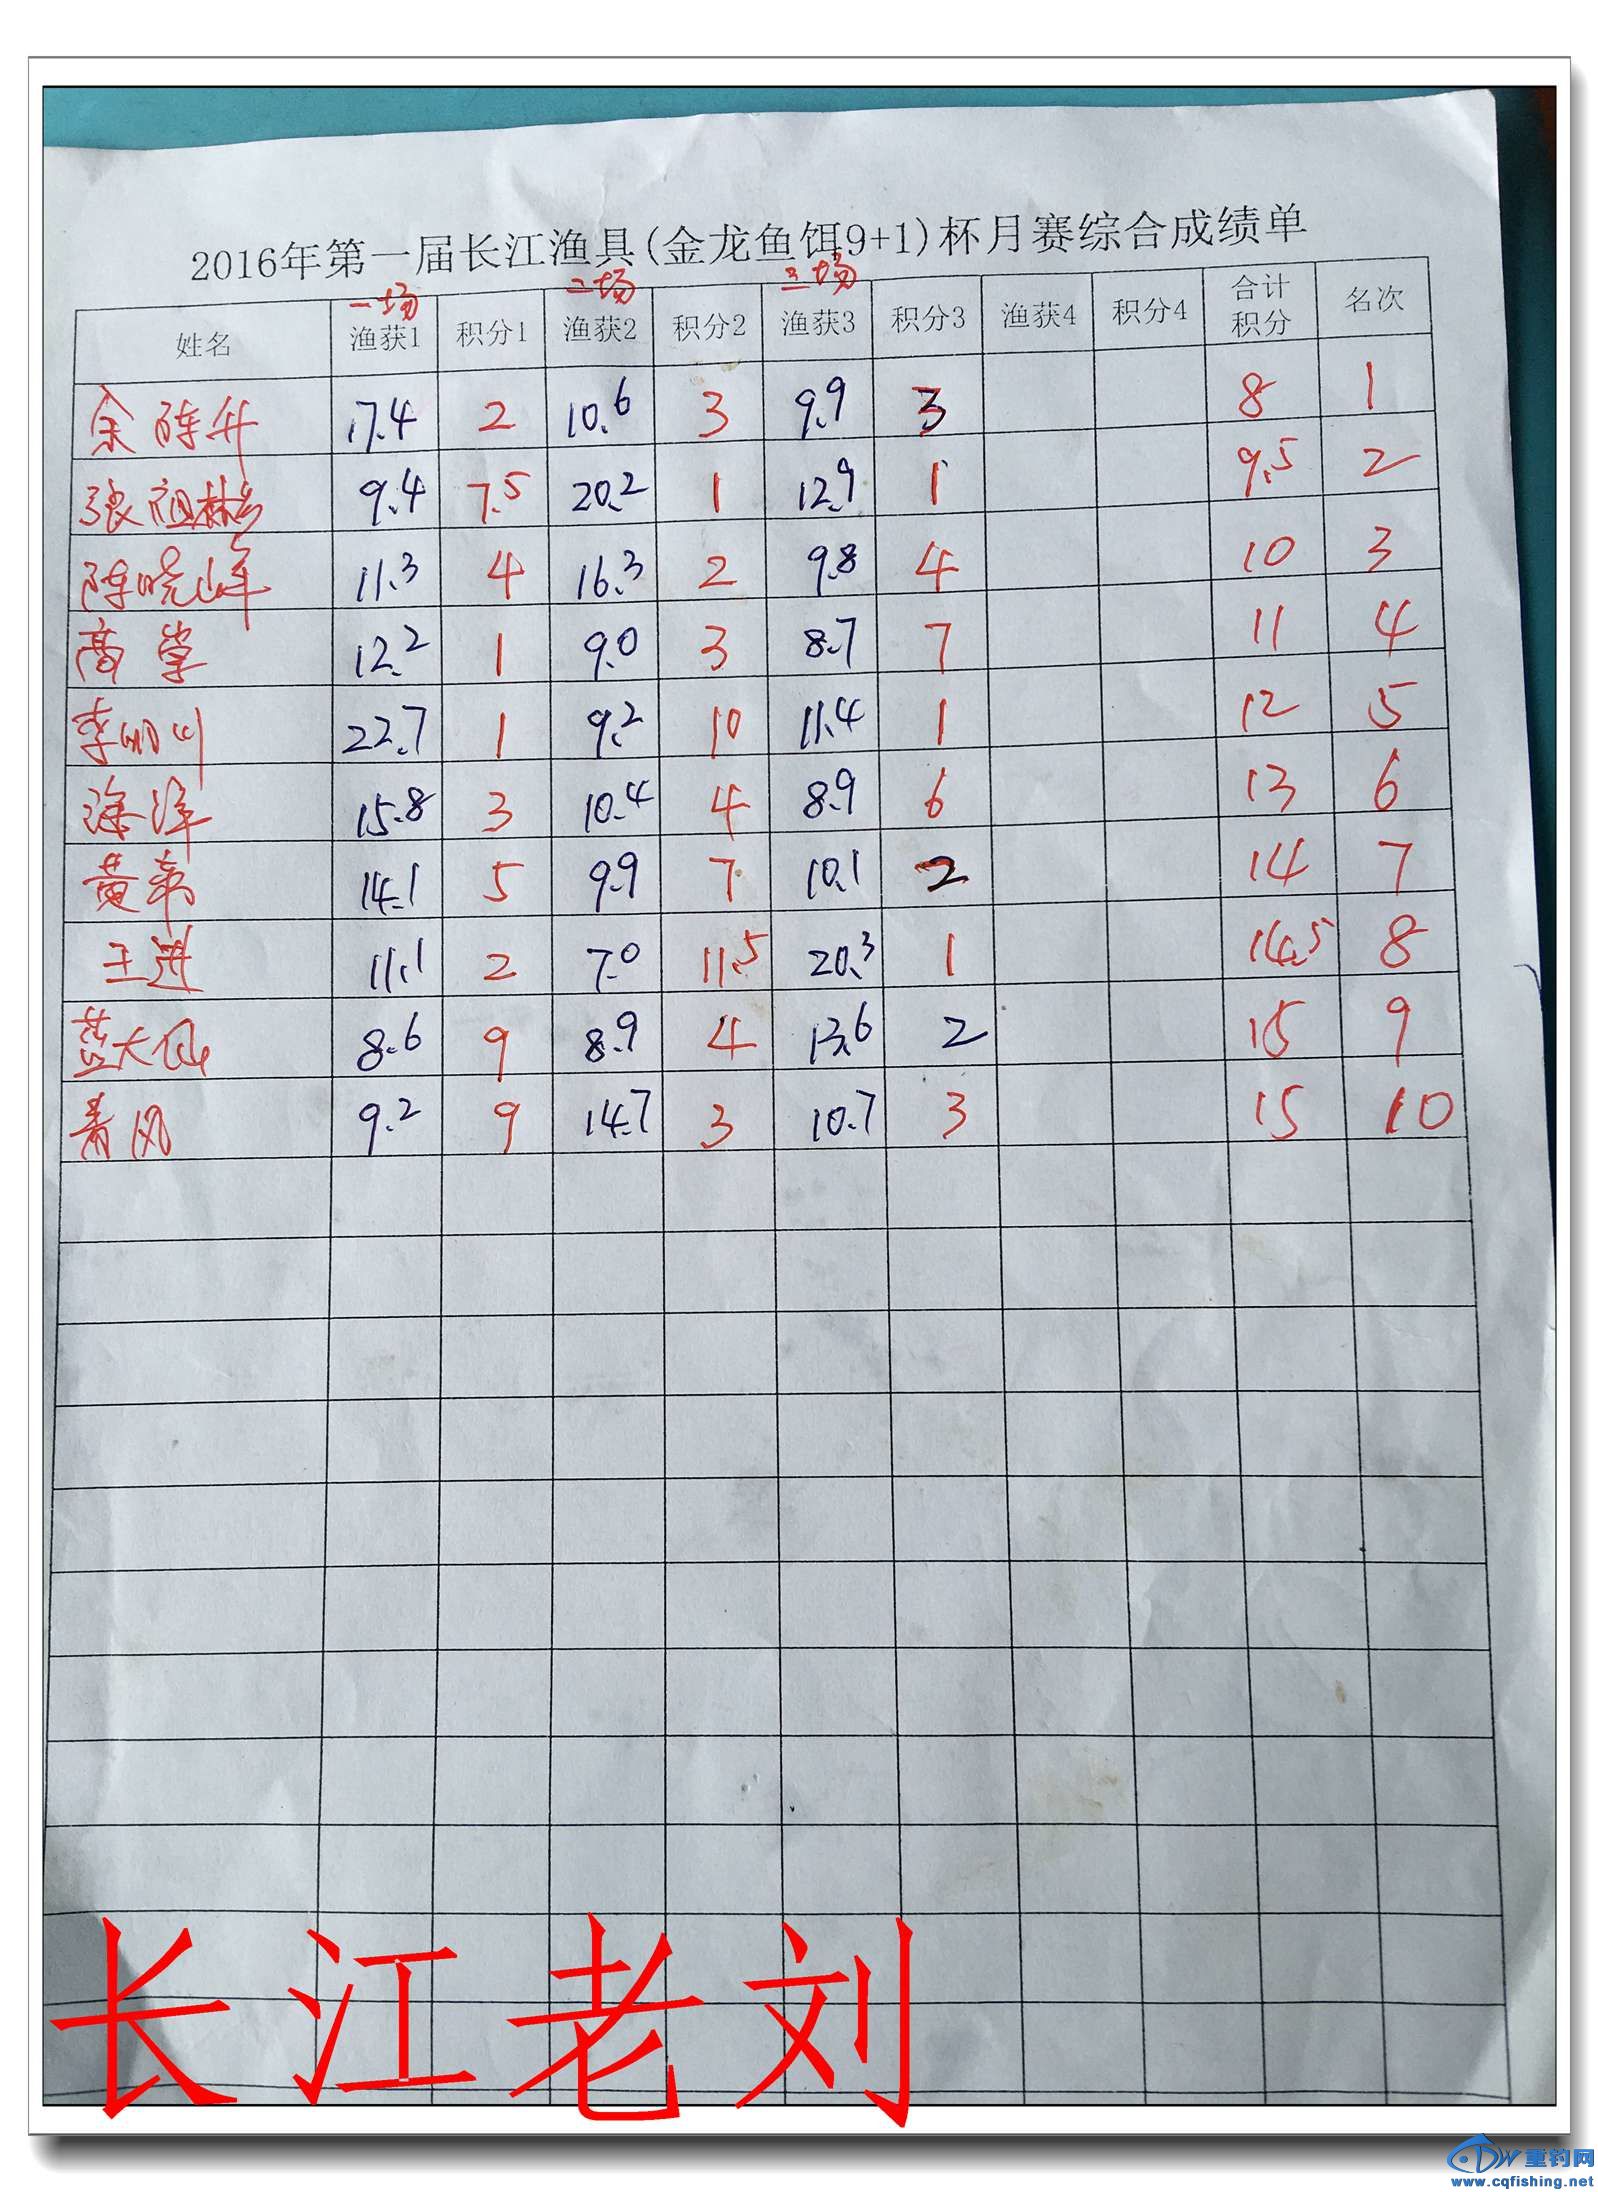 2016年第一届长江渔具(金龙鱼饵9+1)杯月赛综合成绩单
一场 二场 三场
姓名 渔获1 积分1 渔获2 积分2 渔获3 积分3 渔获4 积分4 合计积分 名次
余阵升 17.4 2 10.6 3 9.9 3 8 1
张祖彬 9.4 7.5 20.2 1 12.9 1 9.5 2
陈晓峰 11.3 4 16.3 2 9.8 4 10 3
高掌 12.2 1 9.0 3 8.7 7 11 4
李明川 22.7 1 9.2 10 11.4 1 12 5
涂洋 15.8 3 10.4 4 8.9 6 13 6
黄韦 14.1 5 9.9 7 10.1 2 14 7
王进 11.1 2 7.0 11.5 20.3 1 14.5 8
蓝大仙 8.6 9 8.9 4 13.6 2 15 9
青风 9.2 9 14.7 3 10.7 3 15 10
长江老刘
重钓网
www.cqfishing.net